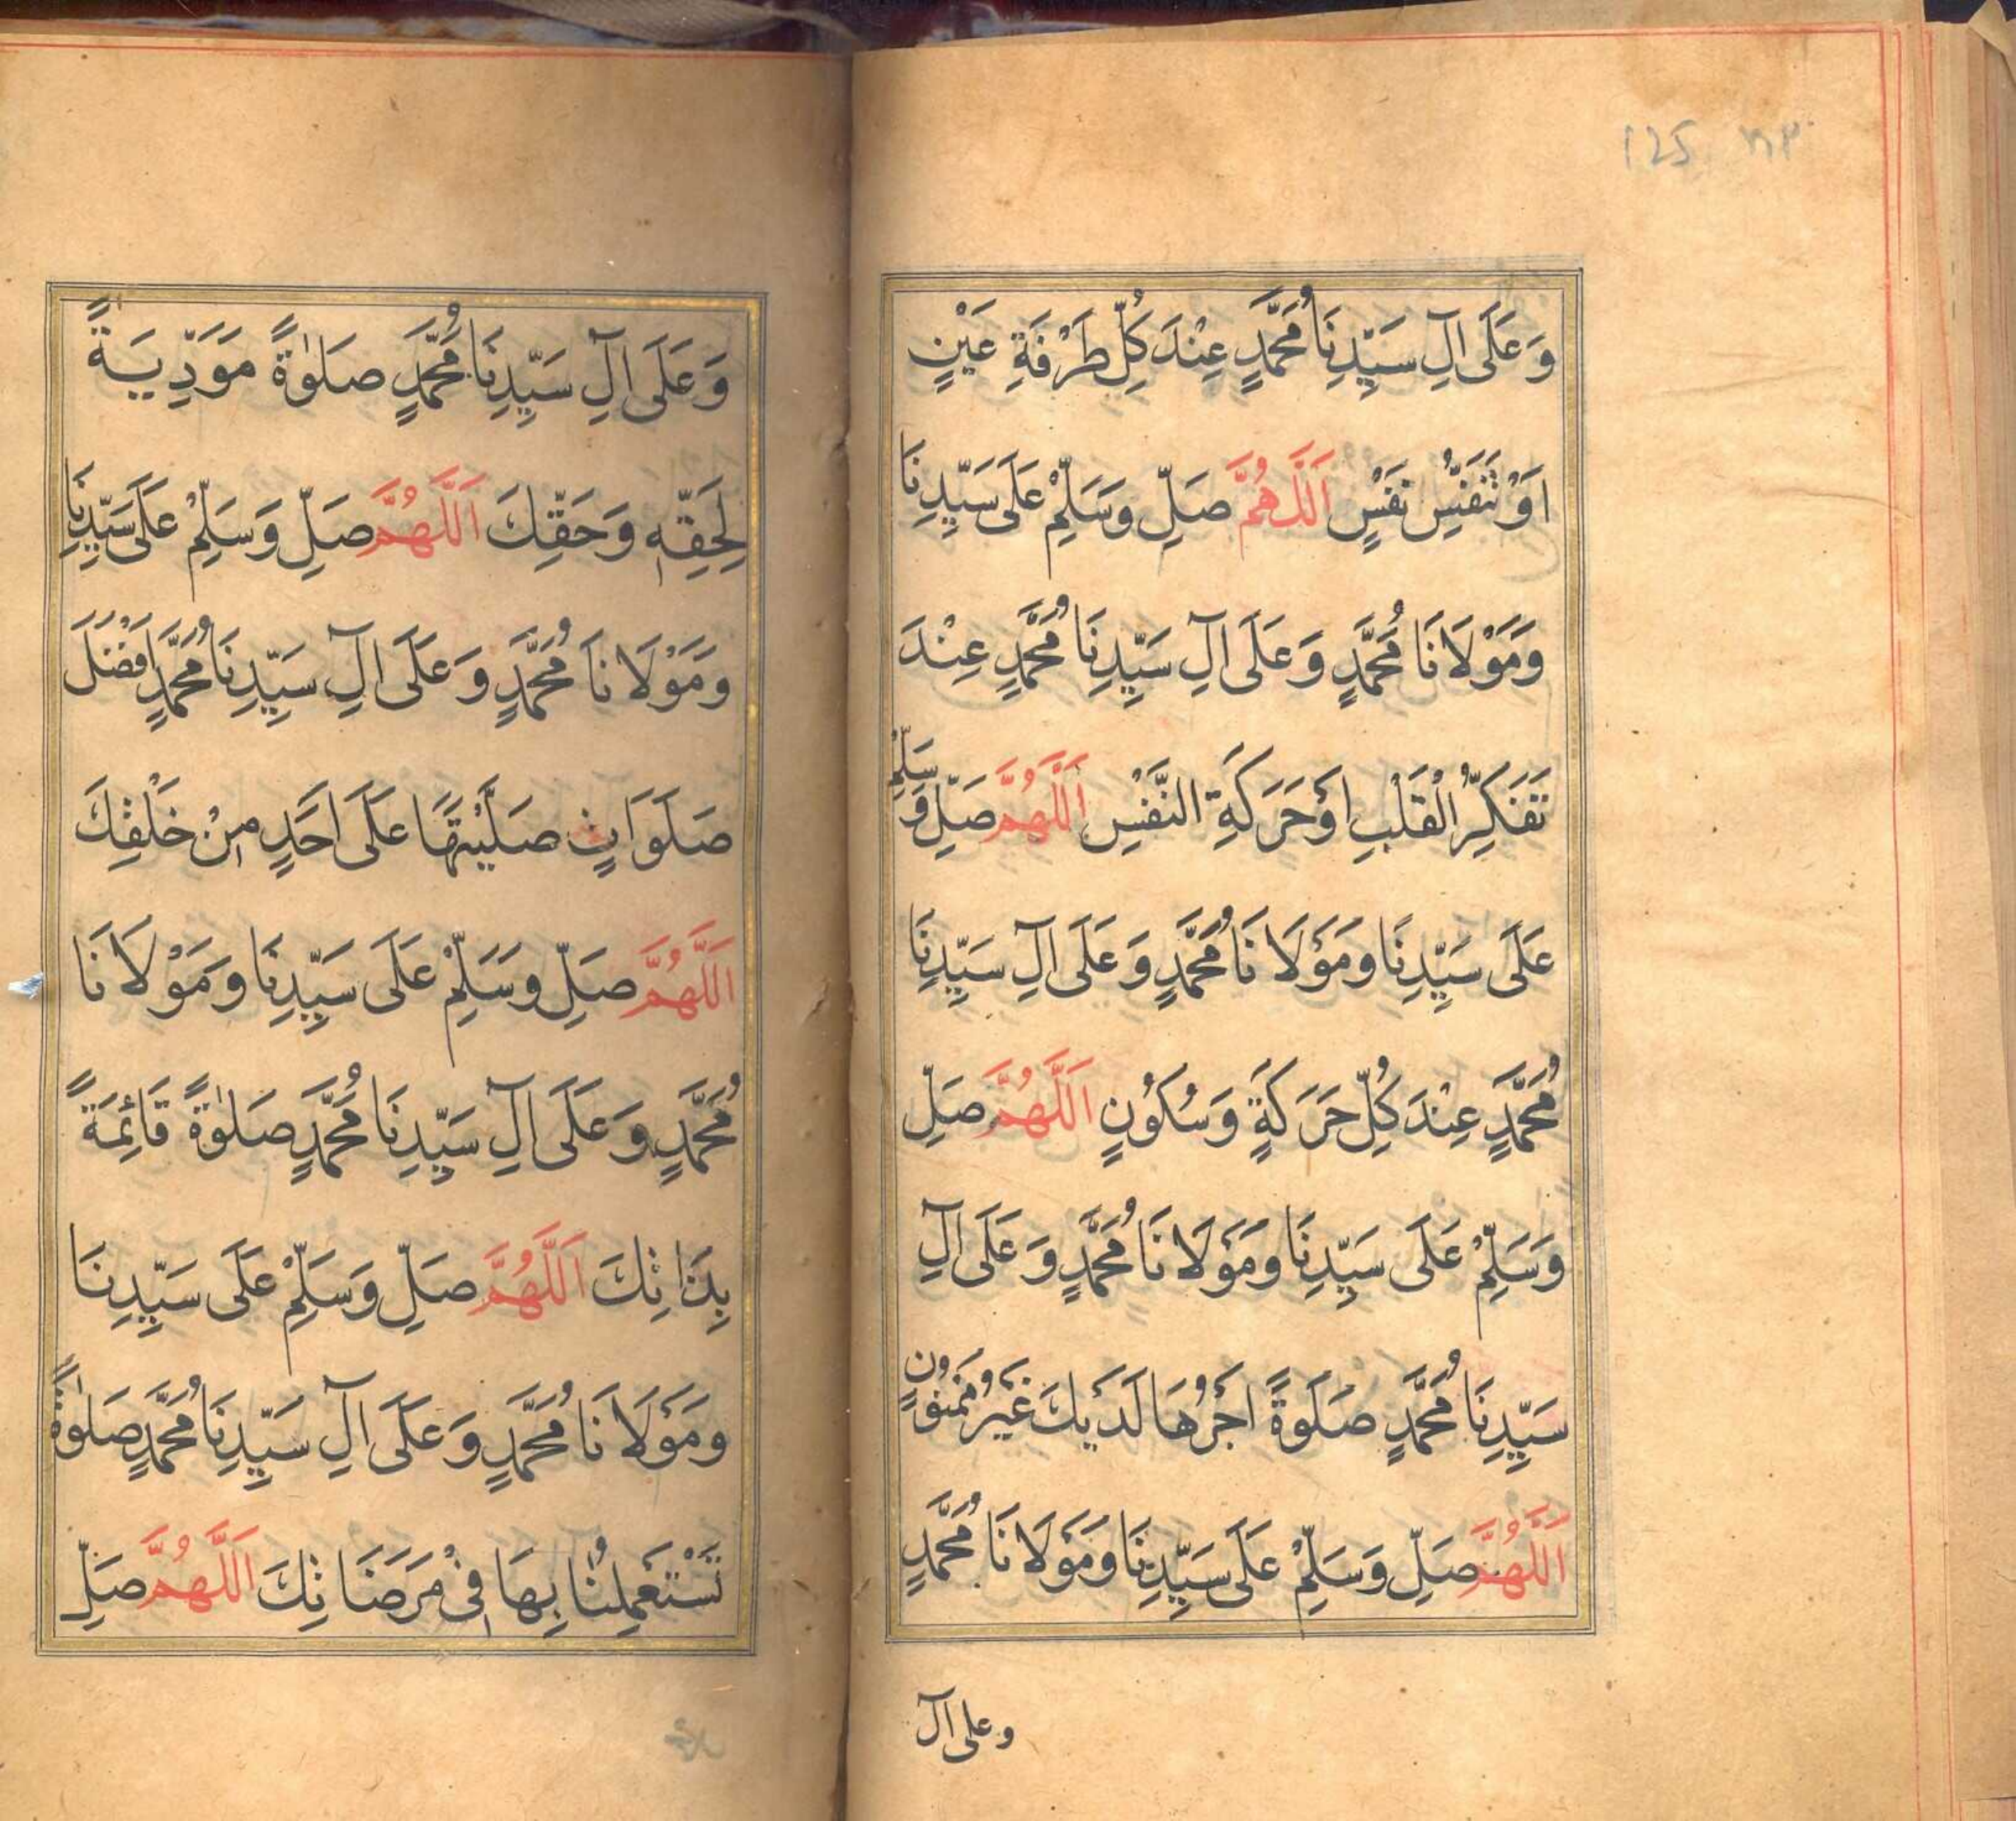 125
وَعَلَى اٰلِ سَيِّدِنَا مُحَمَّدٍ عِنْدَ كُلِّ طَرْفَةِ عَيْنٍ
اَوْ تَنَفُّسِ نَفْسٍ اَللّٰهُمَّ صَلِّ وَسَلِّمْ عَلَى سَيِّدِنَا
وَمَوْلَانَا مُحَمَّدٍ وَعَلَى اٰلِ سَيِّدِنَا مُحَمَّدٍ عِنْدَ
تَفَكُّرِ الْقَلْبِ اَوْ حَرَكَةِ النَّفْسِ اَللّٰهُمَّ صَلِّ وَ سَلِّمْ
عَلَى سَيِّدِنَا وَمَوْلَانَا مُحَمَّدٍ وَعَلَى اٰلِ سَيِّدِنَا
مُحَمَّدٍ عِنْدَ كُلِّ حَرَكَةٍ وَسُكُوْنٍ اَللّٰهُمَّ صَلِّ
وَسَلِّمْ عَلَى سَيِّدِنَا وَمَوْلَانَا مُحَمَّدٍ وَعَلَى اٰلِ
سَيِّدِنَا مُحَمَّدٍ صَلٰوةً اَجْرُهَا لَدَيْكَ غَيْرُ مَمْنُوْنٍ
اَللّٰهُمَّ صَلِّ وَسَلِّمْ عَلَى سَيِّدِنَا وَمَوْلَانَا مُحَمَّدٍ
وعلى آل
وَعَلَى اٰلِ سَيِّدِنَا مُحَمَّدٍ صَلٰوةً مَوَدِّيَةً
لِحَقِّهٖ وَحَقِّكَ اَللّٰهُمَّ صَلِّ وَسَلِّمْ عَلَى سَيِّدِنَا
وَمَوْلَانَا مُحَمَّدٍ وَعَلَى اٰلِ سَيِّدِنَا مُحَمَّدٍ اَفْضَلَ
صَلَوَاتٍ صَلَّيْتَهَا عَلَى اَحَدٍ مِنْ خَلْقِكَ
اَللّٰهُمَّ صَلِّ وَسَلِّمْ عَلَى سَيِّدِنَا وَمَوْلَانَا
مُحَمَّدٍ وَعَلَى اٰلِ سَيِّدِنَا مُحَمَّدٍ صَلٰوةً قَائِمَةً
بِذَاتِكَ اَللّٰهُمَّ صَلِّ وَسَلِّمْ عَلَى سَيِّدِنَا
وَمَوْلَانَا مُحَمَّدٍ وَعَلَى اٰلِ سَيِّدِنَا مُحَمَّدٍ صَلٰوةً
تَسْتَعْمِلُنَا بِهَا فِيْ مَرَضَاتِكَ اَللّٰهُمَّ صَلِّ